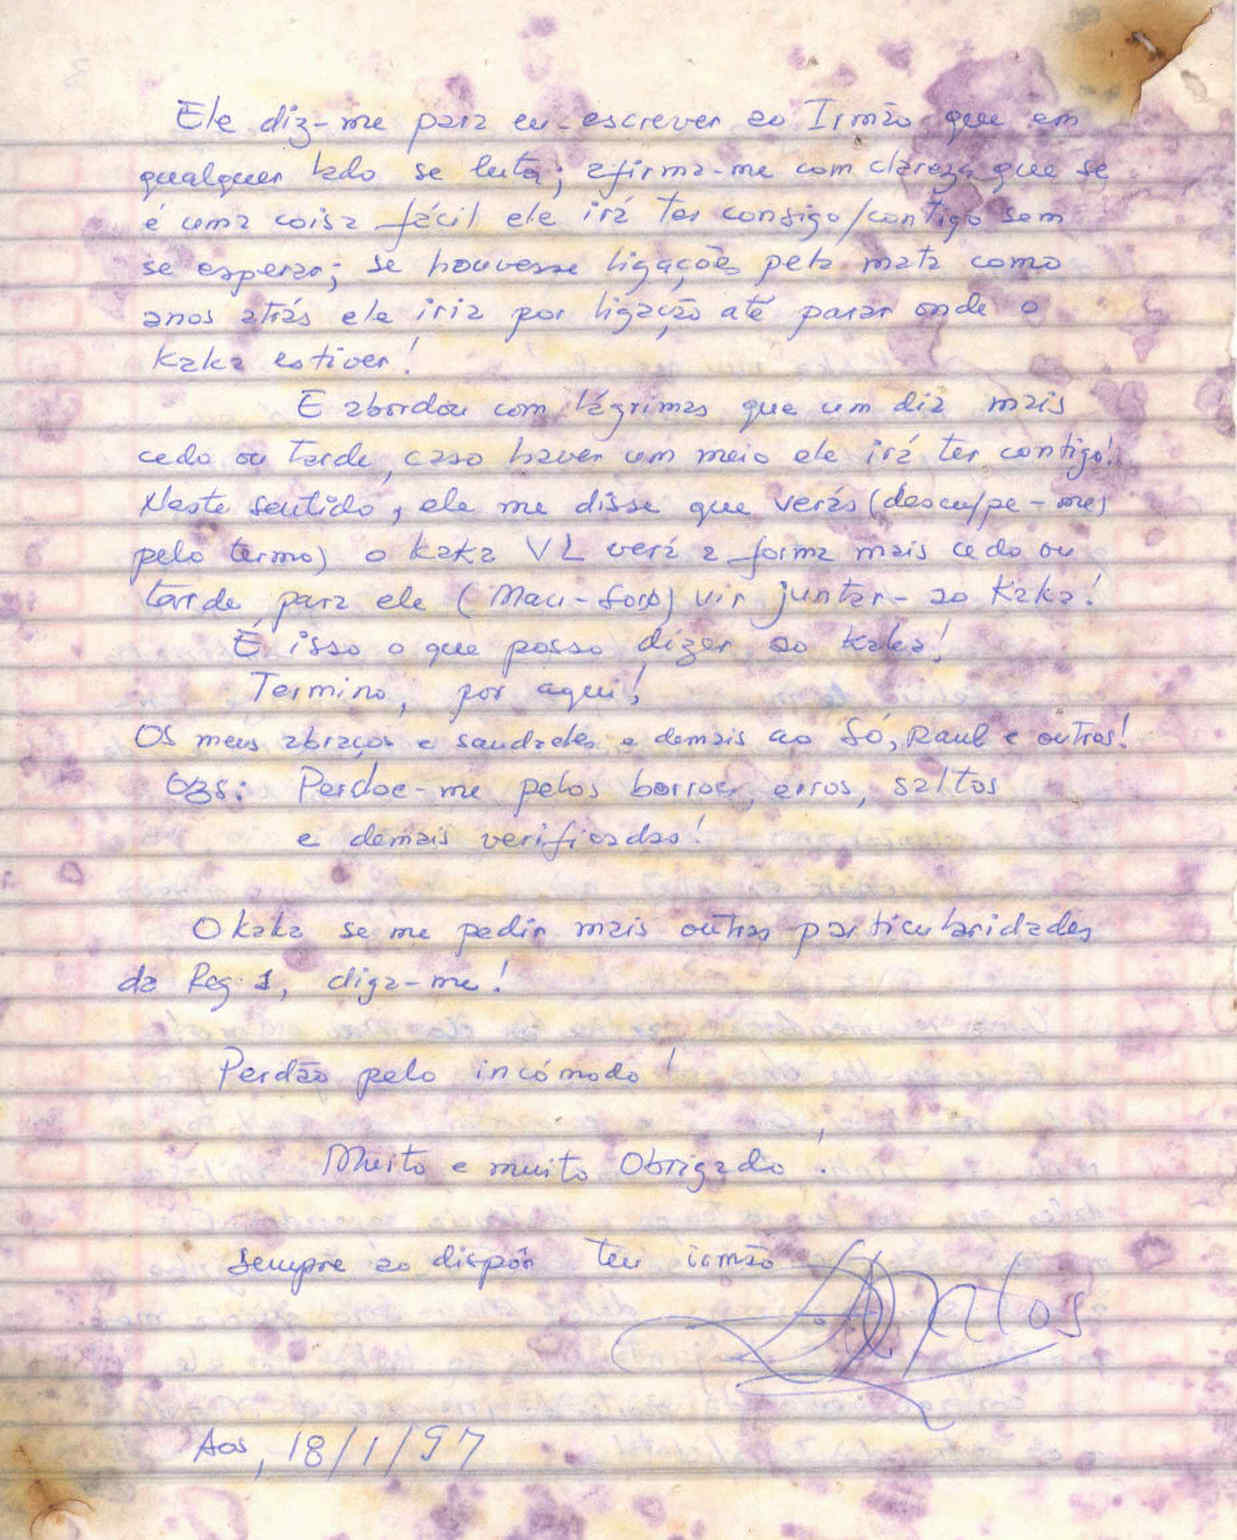 Ele diz-me para eu escrever ao Irmão que em
qualquer lado se luta; afirma-me com clareza que se
é uma coisa fácil ele irá ter consigo/contigo sem
se esperar; se houvesse ligações pela mata como
anos atrás ele iria por ligação até parar onde o
Kaka estiver!
E abordou com lágrimas que um dia mais
cedo ou tarde, caso haver um meio ele irá ter contigo!
Neste sentido, ele me disse que verás (desculpe-me)
pelo termo) o Kaka VL verá a forma mais cedo ou
tarde para ele (Mau-Soro) vir juntar-ao Kaka!
É isso o que posso dizer ao Kaka!
Termino, por aqui!
Os meus abraços e saudades e demais ao Só, Raul e outros!
OBS: Perdoe-me pelos borroes, erros, saltos
e demais verificadas!
O Kaka se me pedir mais outras particularidades
da Reg. 1, diga-me!
Perdão pelo incómodo!
Muito e muito Obrigado!
Sempre ao dispôr teu irmão
Aos, 18/1/97